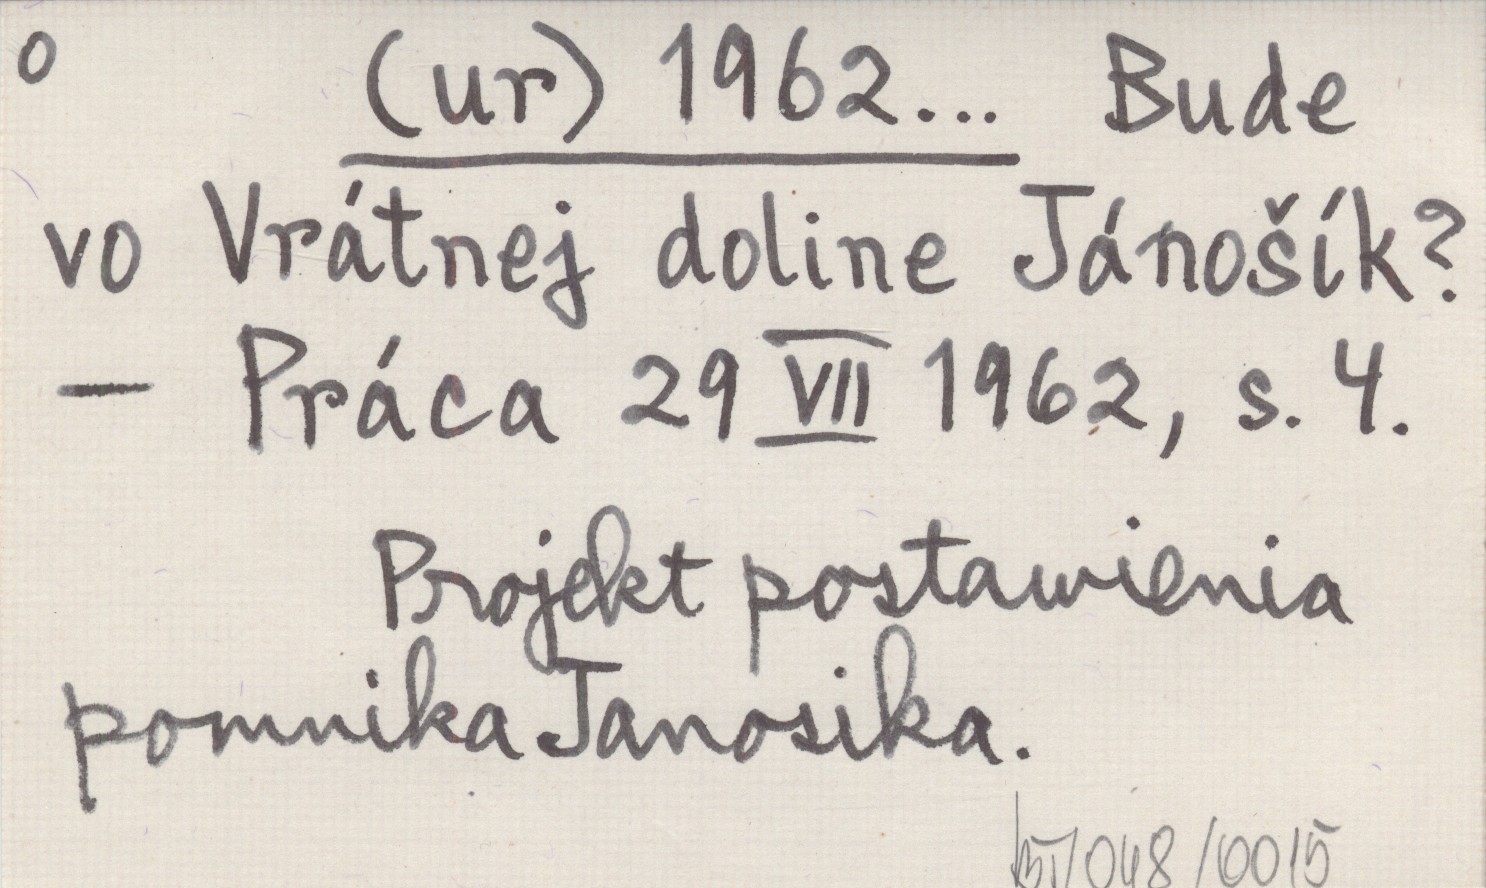 o (ur) 1962... Bude
vo Vrátnej doline Jánošík?
— Práca 29 VII 1962, s. 4.
Projekt postawienia
pomnika Janosika.
/048/0015